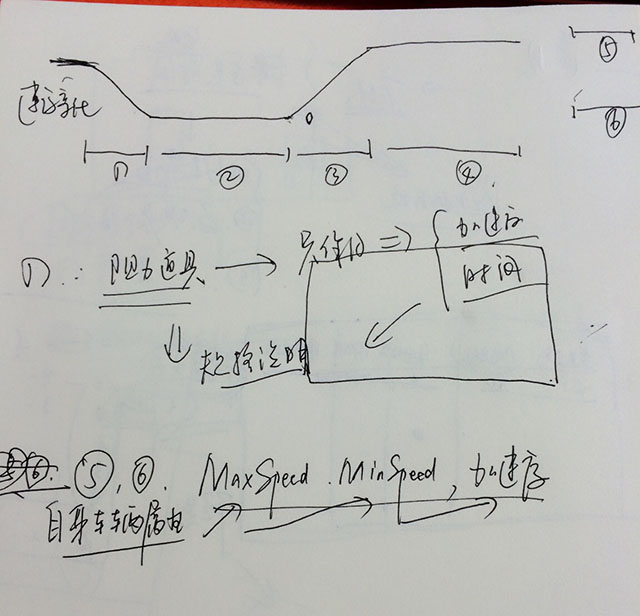 ⑤
速度变化
o
① ② ③ ④
⑥
①: 阻力道具 → 只作用 ⇒ { 加速度
时间
⇓ 规格说明
⑤, ⑥. MaxSpeed. MinSpeed, 加速度
自身车辆属性